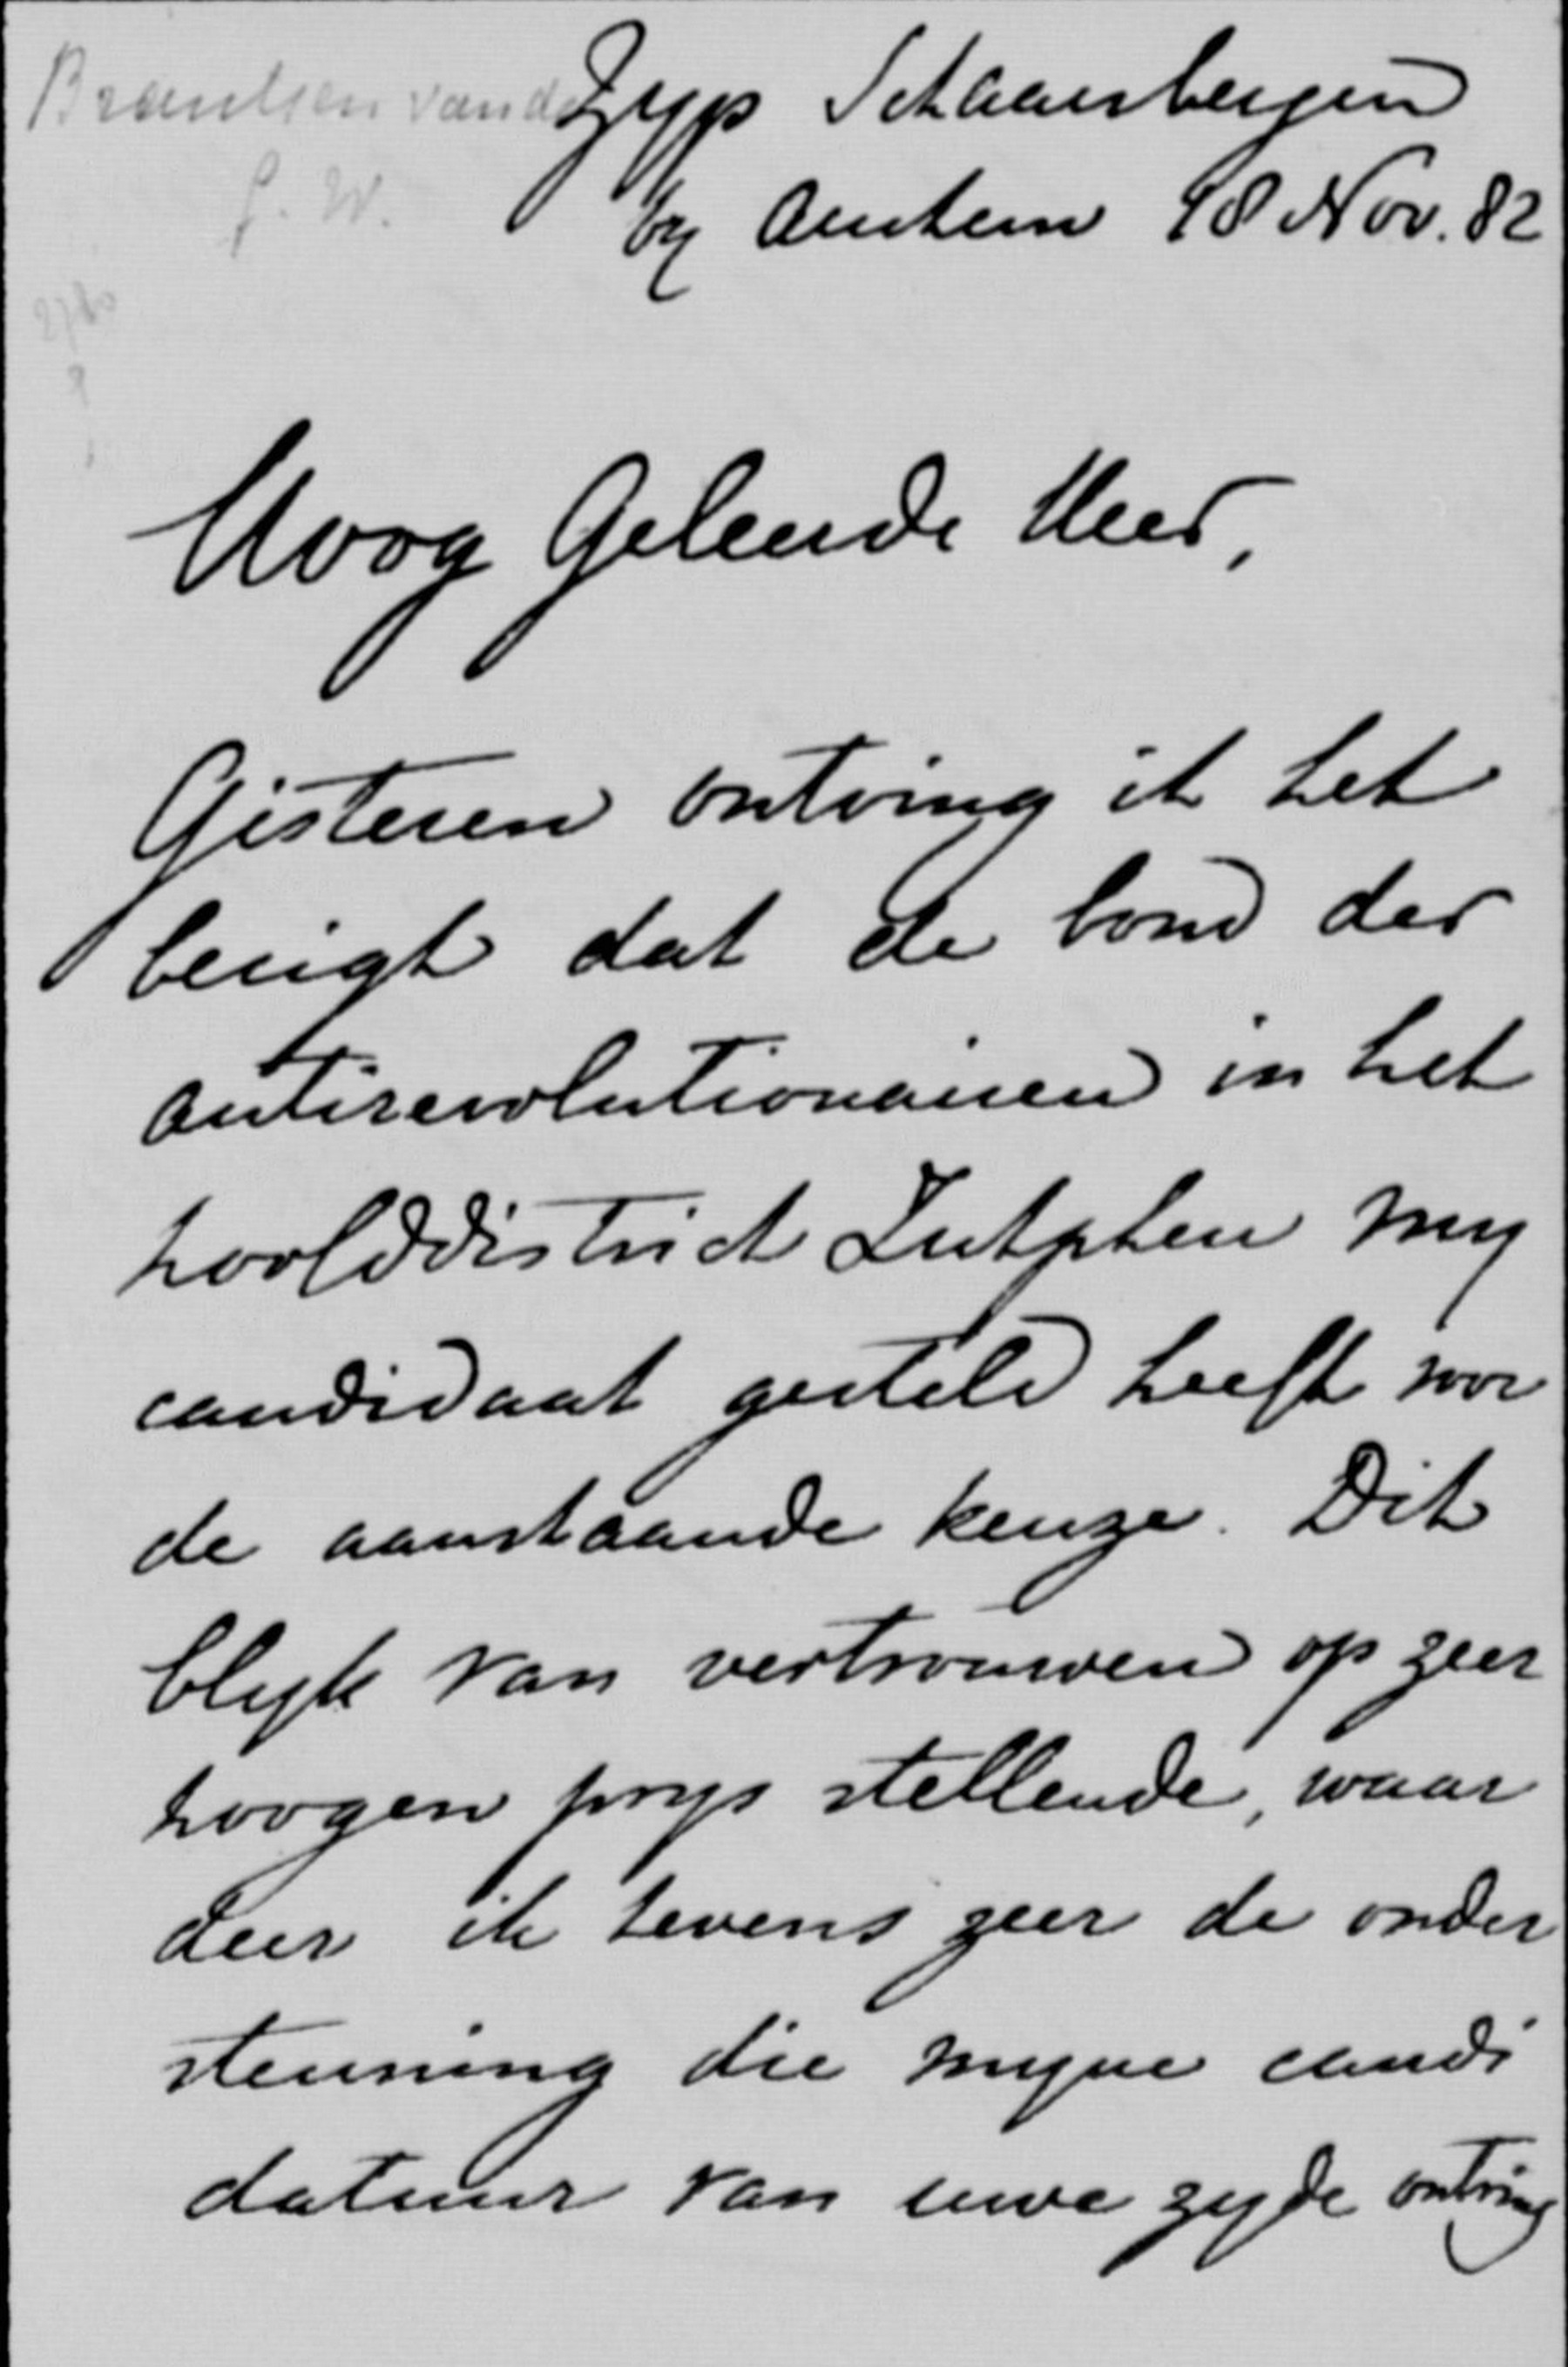 Brantsen van de Zyp Schaarsbergen
by Arnhem 18 Nov. 82
Hoog Geleerde Heer,
Gisteren ontving ik het
berigt dat de bond der
antirevolutionairen in het
hoofddistrict Zutphen my
candidaat gesteld heeft voor
de aanstaande keuze. Dit
blyk van vertrouwen op zeer
hoogen prys stellende, waar
deer ik tevens zeer de onder
steuning die myne candi
datuur van uwe zyde ontving